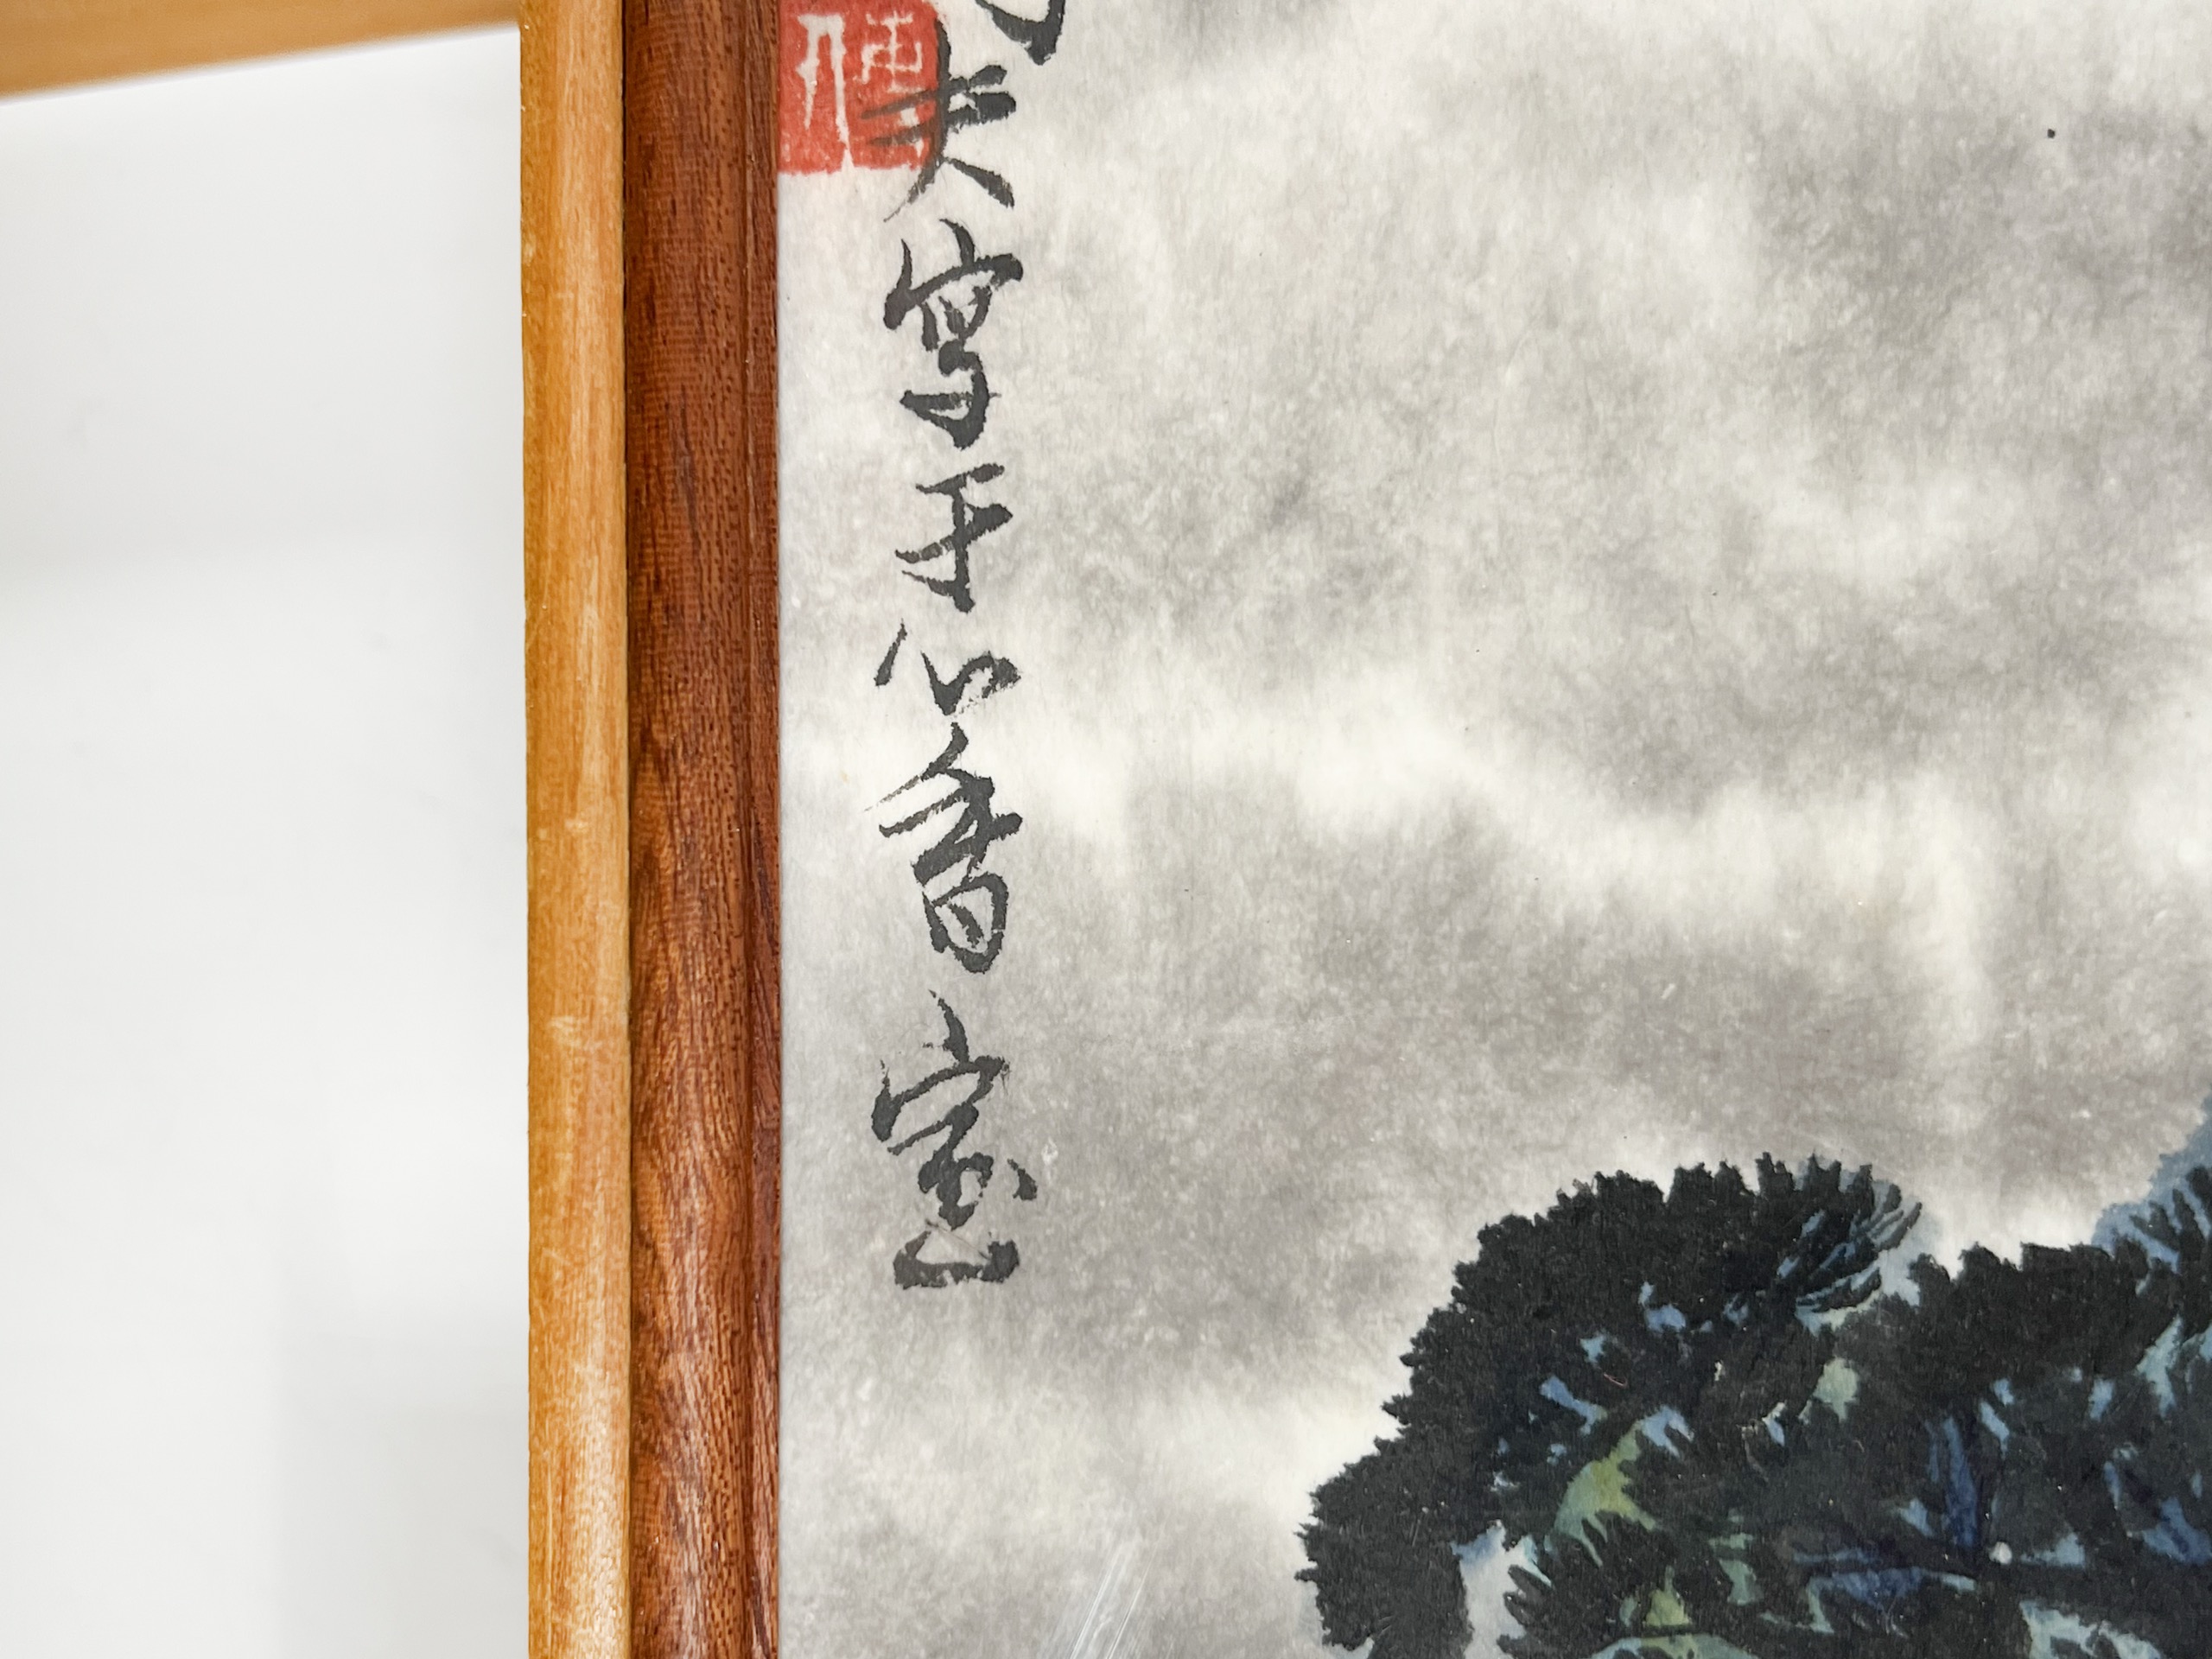 夫寫于心香室